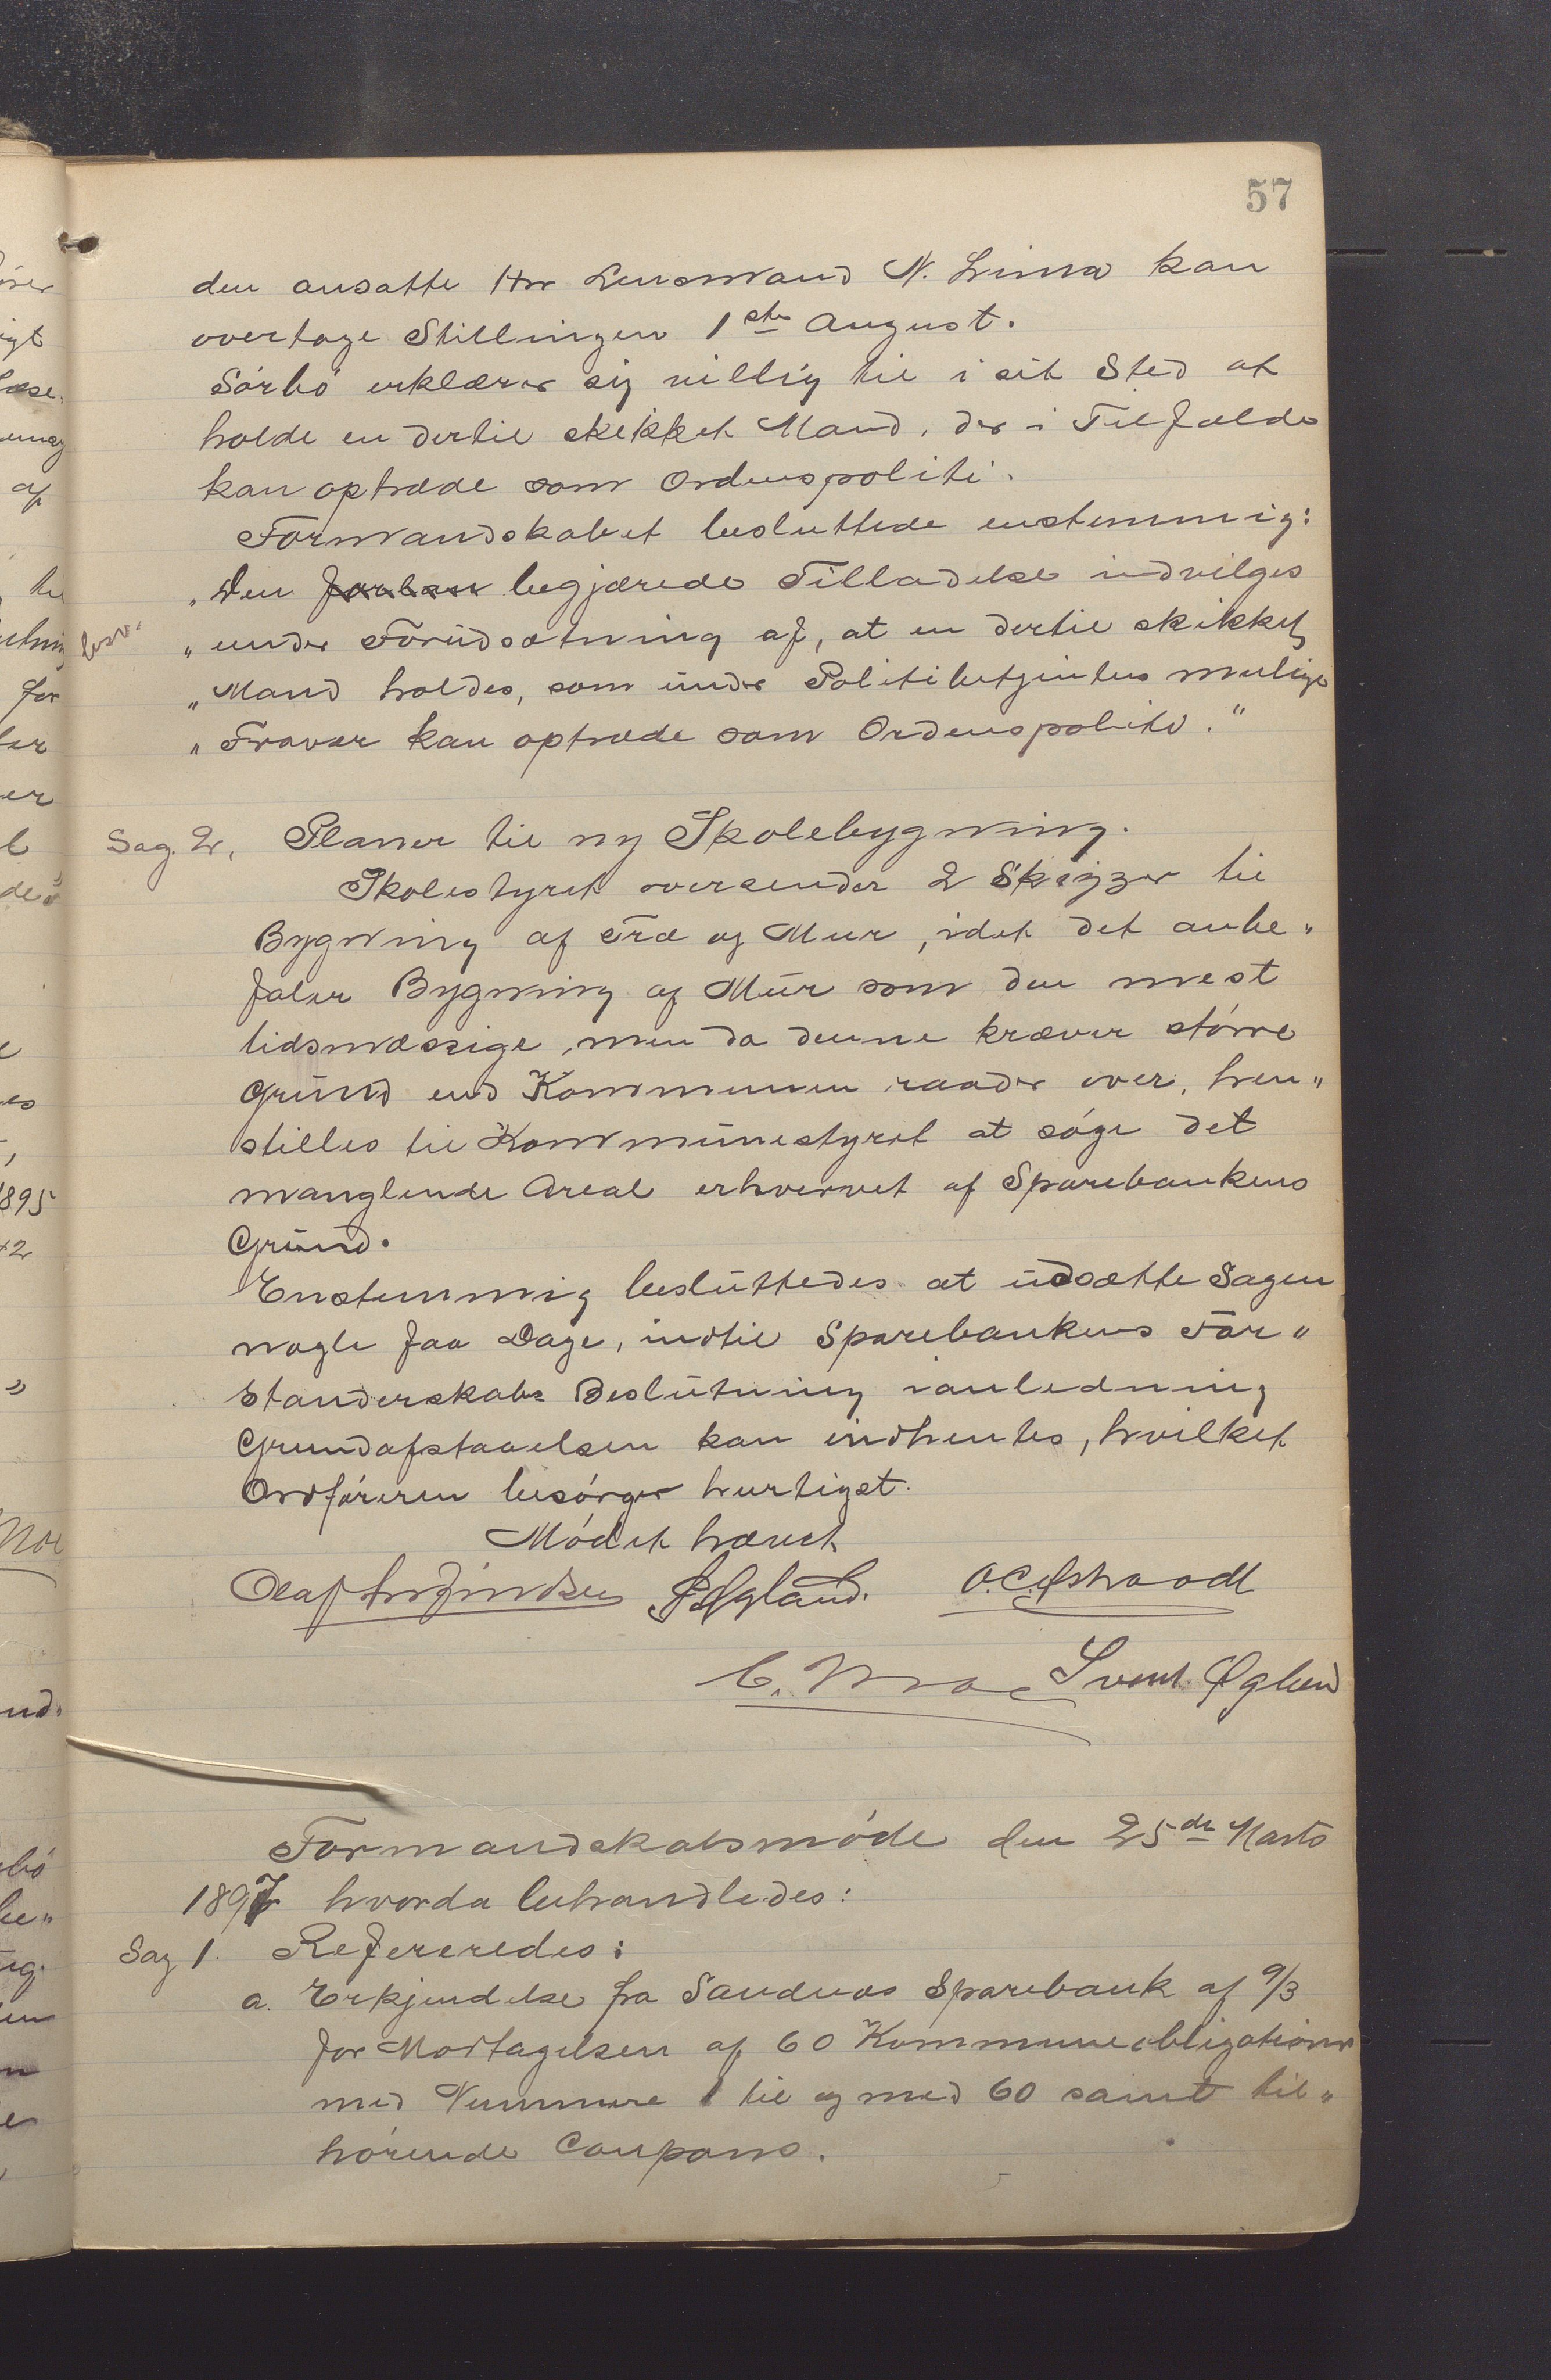 57
den ansatte Hr Lensmand N. Lima kan
overtage Stillingen 1ste August.
Sörbö erklærer sig villig til i sit Sted at
holde en dertil skikket Mand, der i Tilfælde
kan optræde som Ordenspoliti.
Formandskabet besluttede enstemmig:
„Den begjærede Tilladelse indvilges
„under Forudsætning af, at en dertil skikket
„Mand holdes, som under Politibetjentens mulige
„Fravær kan optræde som Ordenspoliti."
Sag. 2, Planer til ny Skolebygning.
Skolestyret oversender 2 Skizzer til
Bygning af Træ og Mur, idet det anbe„
faler Bygning af Mur som den mest
tidsmæssige, men da denne kræver större
Grund end Kommunen raader over, hen„
stilles til Kommunestyret at söge det
manglende Areal erhvervet af Sparebankens
Grund.
Enstemmig besluttedes at udsætte Sagen
nogle faa Dage, indtil Sparebankens For„
standerskabs Beslutning ianledning
Grundafstaaelsen kan indhentes, hvilket
Ordföreren besörger hurtigst.
Mödet hævet
Olaf
Øgland.
C.
Svend Øglend
Formandskabsmöde den 25de Marts
1897 hvorda behandledes:
Sag 1. Refereredes:
a. Erkjendelse fra Sandnæs Sparebank af 9/3
for Modtagelsen af 60 Kommuneobligationer
med Nummere 1 til og med 60 samt til„
hörende Coupons.